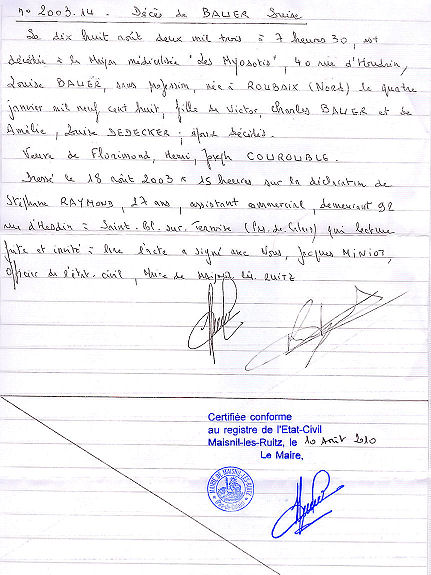 n° 2003.14. Décès de BAUER Louise
Le dix huit août deux mil trois à 7 heures 30, est
décédée à la Maison médicalisée "Les Myosotis", 40 rue d'Houdain,
Louise BAUER, sans profession, née à ROUBAIX (Nord) le quatre
janvier mil neuf cent huit, fille de Victor, Charles BAUER et de
Amélie, Louise DEDECKER, époux décédés.
Veuve de Florimond, Henri, Joseph COUROUBLE.
Dressé le 18 août 2003 à 15 heures sur la déclaration de
Stéphane RAYMOND, 27 ans, assistant commercial, demeurant 92
rue d'Hesdin à Saint. Pol. sur. Ternoise (Pas. de. Calais) qui lecture
faite et invité à lire l'acte a signé avec Nous, Jacques MINIOT,
Officier de l'état. civil, Maire de Maisnil. les. RUITZ
Certifiée conforme
au registre de l'Etat-Civil
Maisnil-les-Ruitz, le 10 Août 2010
Le Maire,
MAIRIE DE MAISNIL-LES-RUITZ